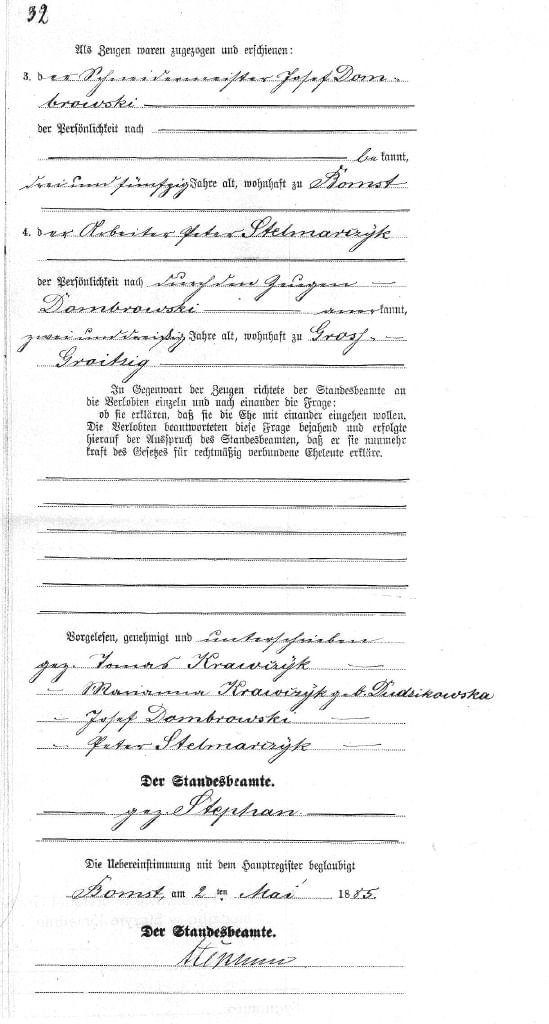 32
Als Zeugen waren zugezogen und erschienen:
3. der Schneidermeister Josef Dom-
browski
der Persönlichkeit nach
be kannt,
drei und fünfzig Jahre alt, wohnhaft zu Bomst
4. der Arbeiter Peter Stelmarczÿk
der Persönlichkeit nach durch den Zeugen
Dombrowski anerkannt,
zwei und dreißig Jahre alt, wohnhaft zu Gross-
Groitzig
In Gegenwart der Zeugen richtete der Standesbeamte an
die Verlobten einzeln und nach einander die Frage:
ob sie erklären, daß sie die Ehe mit einander eingehen wollen.
Die Verlobten beantworteten diese Frage bejahend und erfolgte
hierauf der Ausspruch des Standesbeamten, daß er sie nunmehr
kraft des Gesetzes für rechtmäßig verbundene Eheleute erkläre.
Vorgelesen, genehmigt und unterschrieben
gez. Tomas Krawczÿk
- Marianna Krawczÿk geb. Dudzikowska
- Josef Dombrowski
- Peter Stelmarczÿk
Der Standesbeamte.
gez. Stephan
Die Uebereinstimmung mit dem Hauptregister beglaubigt
Bomst, am 2 ten Mai 1885.
Der Standesbeamte.
Stephan